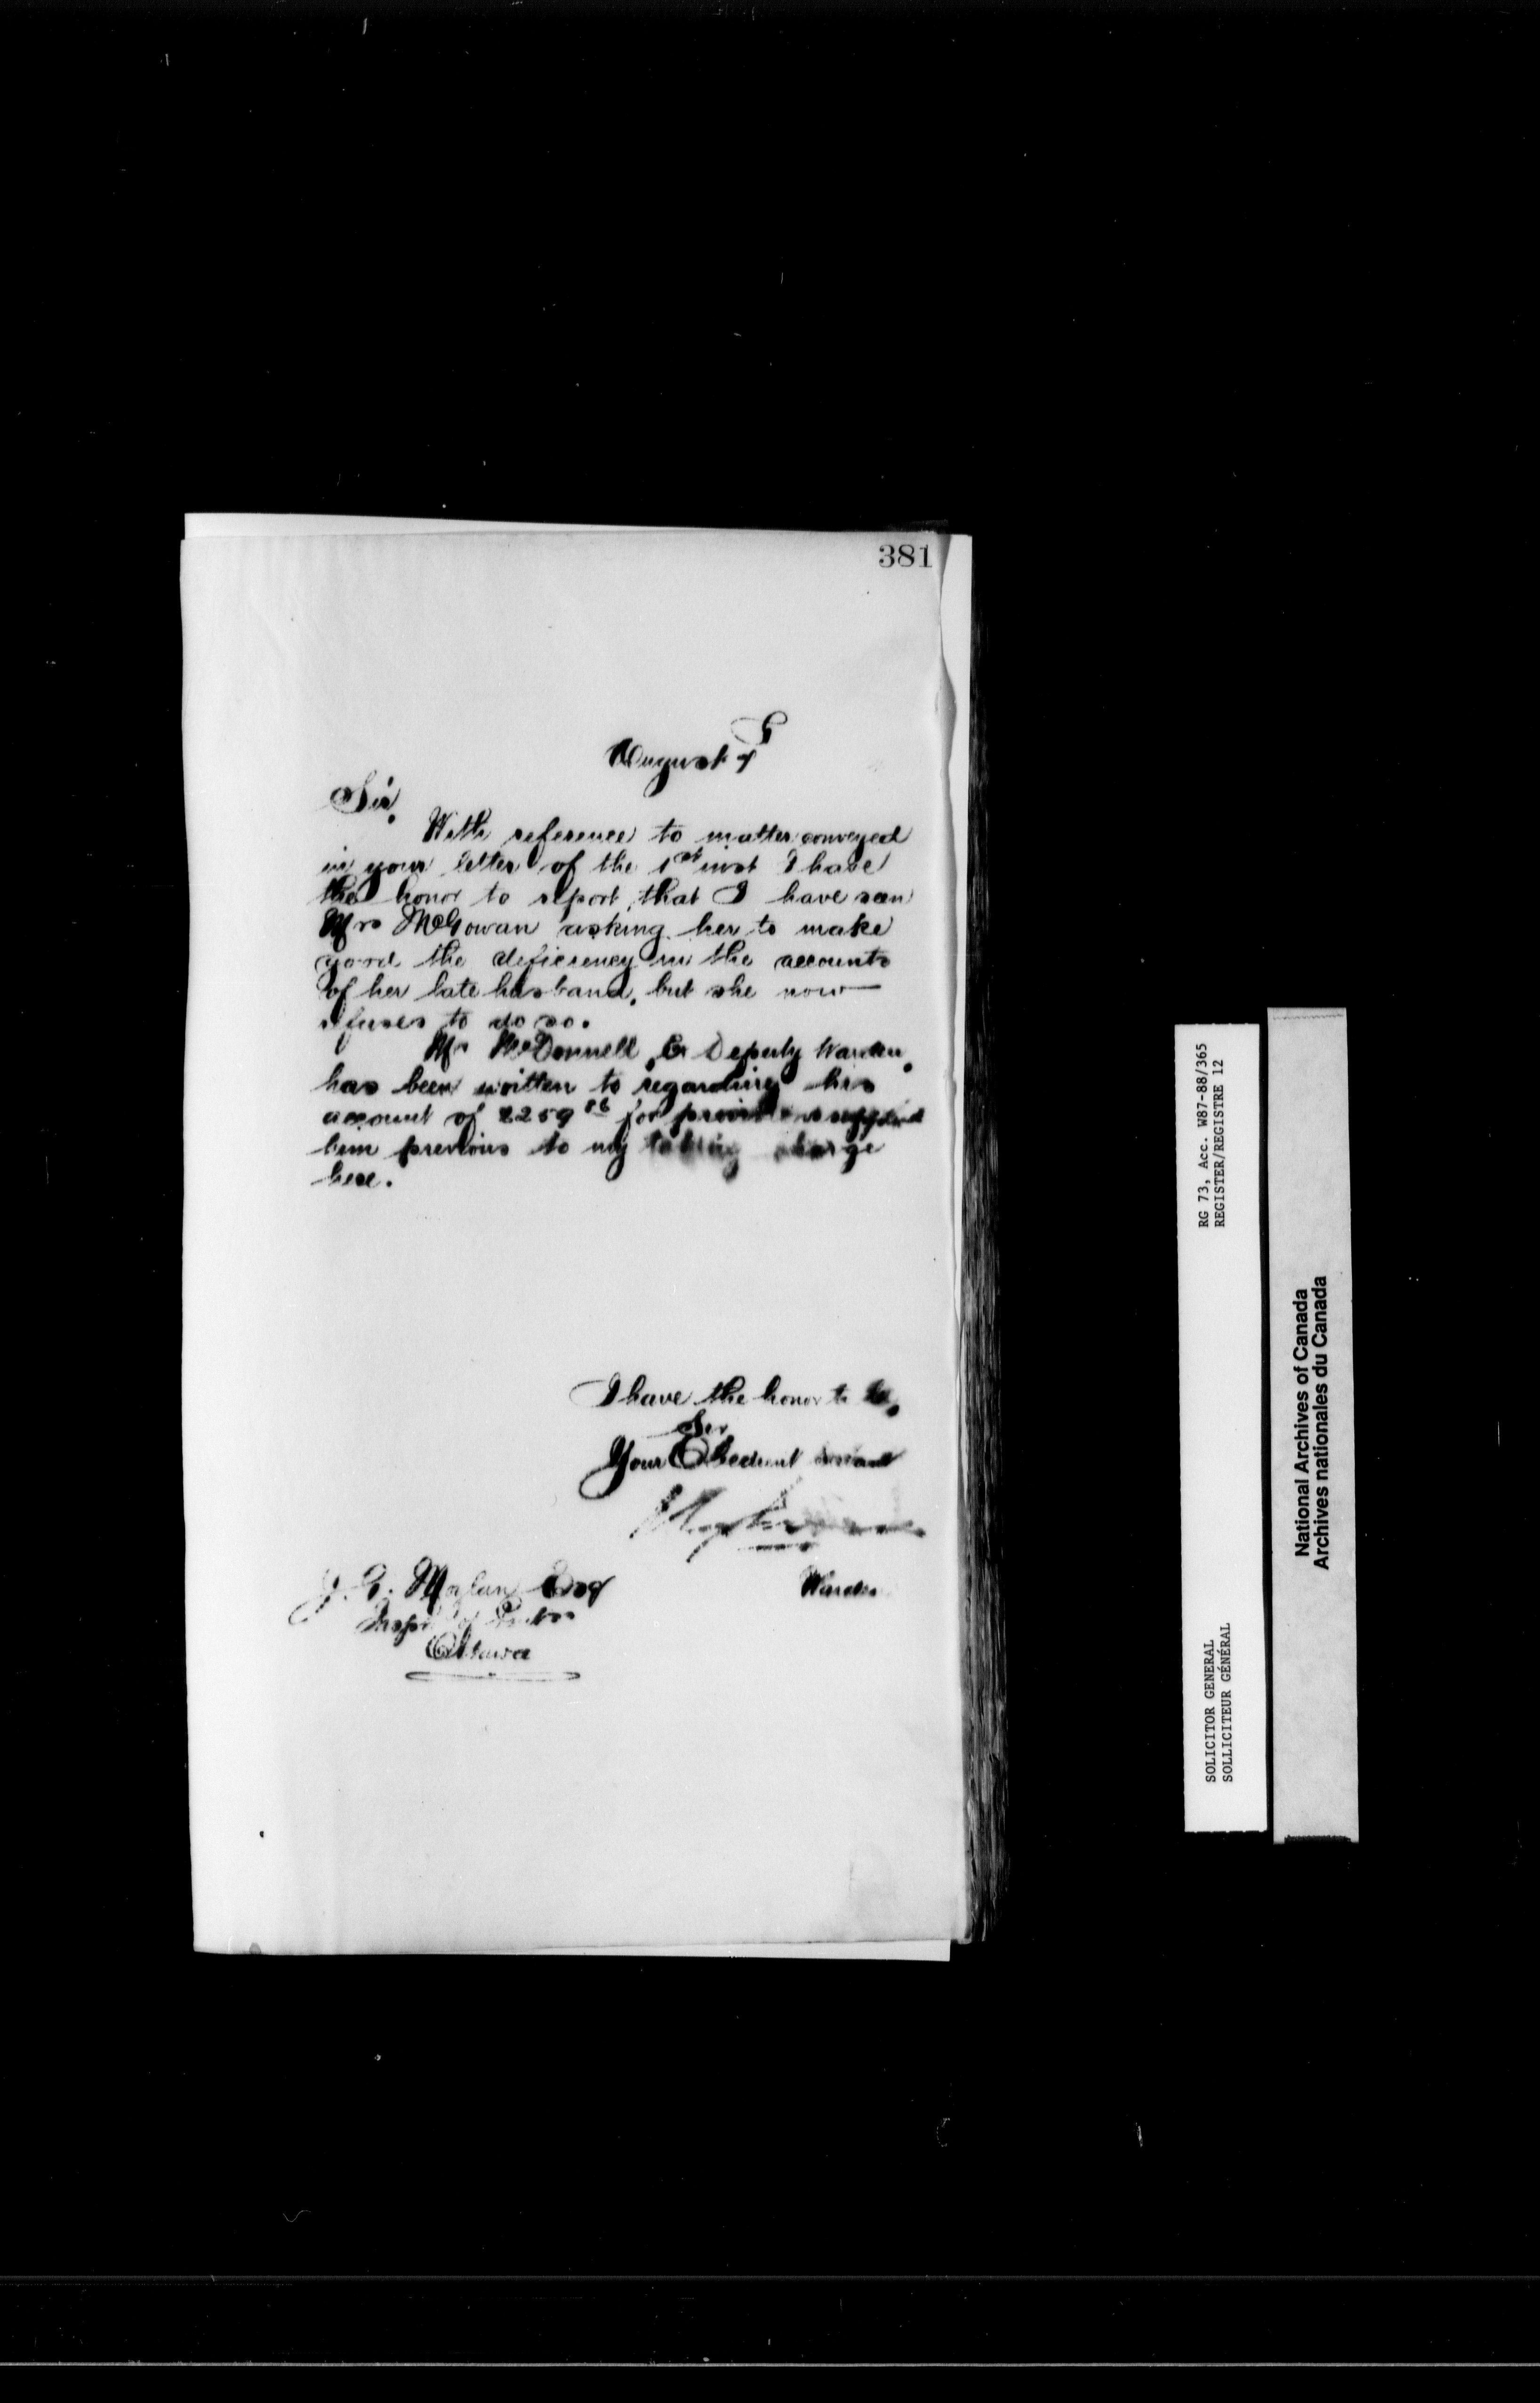 381
August 7
Sir,
With reference to matter conveyed
in your letter of the 1st inst I have
the honor to report, that I have seen
Mrs McGowan asking her to make
good the deficiency in the accounts
of her late husband, but she now
refuses to do so.
Mr McDonnell, Ex Deputy Warden,
has been written to regarding his
account of $259 for provisions supplied
him previous to my taking charge
here.
I have the honor to be,
Sir
Your Obedient servant
Warden
J. G. Moylan Esq
Inspr of Penitrs
Ottawa
RG 73, Acc. W87-88/365
REGISTER/REGISTRE 12
SOLICITOR GENERAL
SOLLICITEUR GÉNÉRAL
National Archives of Canada
Archives nationales du Canada